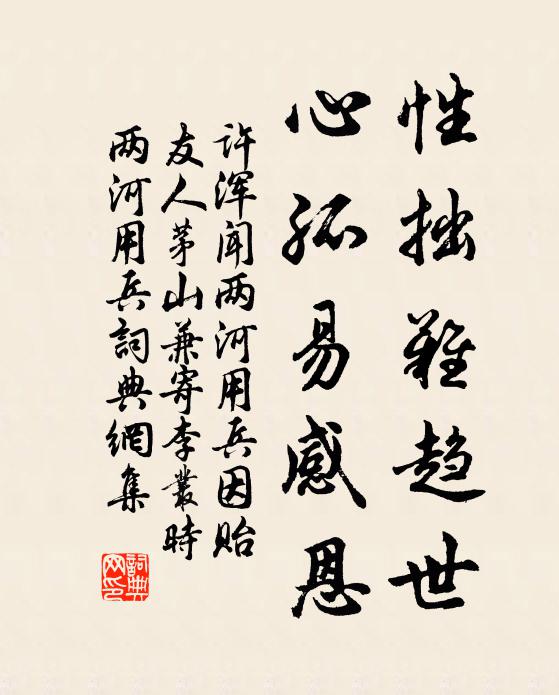 性拙難趨世
心孤易感恩
许渾闻两河用兵因贻
友人茅山兼寄李叢時
两河用兵詞典網集
詞典
网印